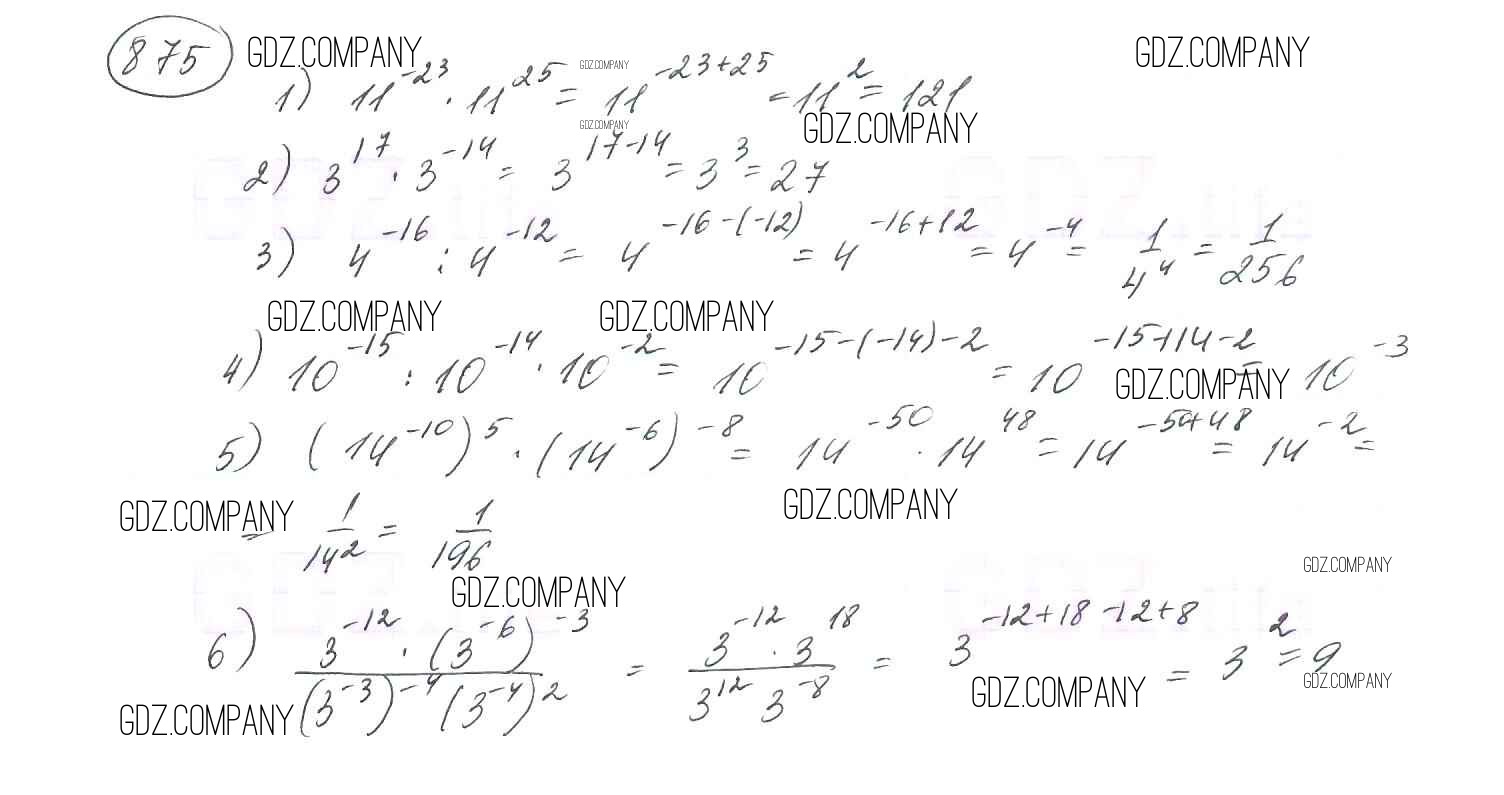 875 GDZ.COMPANY GDZ.COMPANY GDZ.COMPANY
1) 11^-23 · 11^25 = 11^-23+25 = 11^2 = 121
GDZ.COMPANY GDZ.COMPANY
2) 3^17 · 3^-14 = 3^17-14 = 3^3 = 27
3) 4^-16 : 4^-12 = 4^-16-(-12) = 4^-16+12 = 4^-4 = 1/4^4 = 1/256
GDZ.COMPANY GDZ.COMPANY
4) 10^-15 : 10^-14 · 10^-2 = 10^-15-(-14)-2 = 10^-15+14-2 = 10^-3
GDZ.COMPANY
5) (14^-10)^5 · (14^-6)^-8 = 14^-50 · 14^48 = 14^-50+48 = 14^-2 =
GDZ.COMPANY GDZ.COMPANY
= 1/14^2 = 1/196
GDZ.COMPANY GDZ.COMPANY
6) 3^-12 · (3^-6)^-3 / (3^-3)^-4 (3^-4)^2 = 3^-12 · 3^18 / 3^12 3^-8 = 3^-12+18-12+8 = 3^2 = 9
GDZ.COMPANY GDZ.COMPANY GDZ.COMPANY